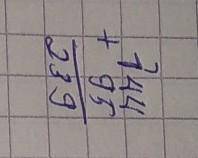 144
+
95
239